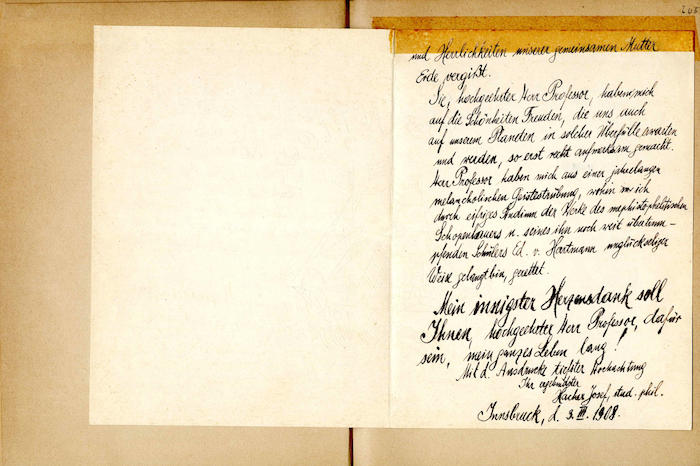 205
und Herrlichkeiten unserer gemeinsamen Mutter
Erde vergißt.
Sie, hochgeehrter Herr Professor, haben mich
auf die Schönheiten Freuden, die uns auch
auf unserem Planeten in solcher Überfülle erwarten
und werden, so erst recht aufmerksam gemacht.
Herr Professor haben mich aus einer jahrelangen
melancholischen Geistestrübung, worin ich
durch eifriges Studium der Werke des mephistophelischen
Schopenhauers u. seines ihn noch weit übertrum-
pfenden Schülers Ed. v. Hartmann unglückseliger
Weise gelangt bin, gerettet.
Mein innigster Herzensdank soll
Ihnen, hochgeehrter Herr Professor, dafür
sein, mein ganzes Leben lang!
Mit d. Ausdrucke tiefster Hochachtung
Ihr ergebenster
Josef, stud. phil.
Innsbruck, d. 3. III. 1908.